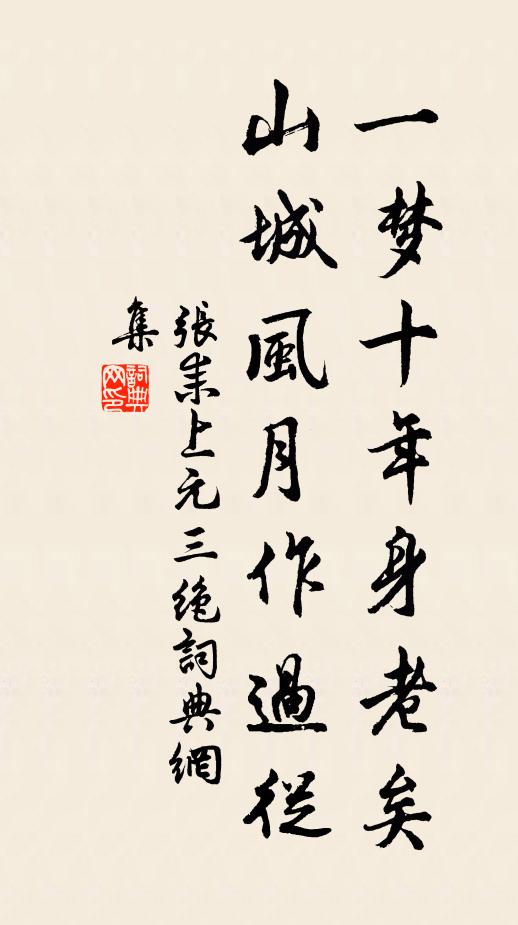 一梦十年身老矣
山城風月作過從
張耒上元三绝詞典網
集
詞典网印